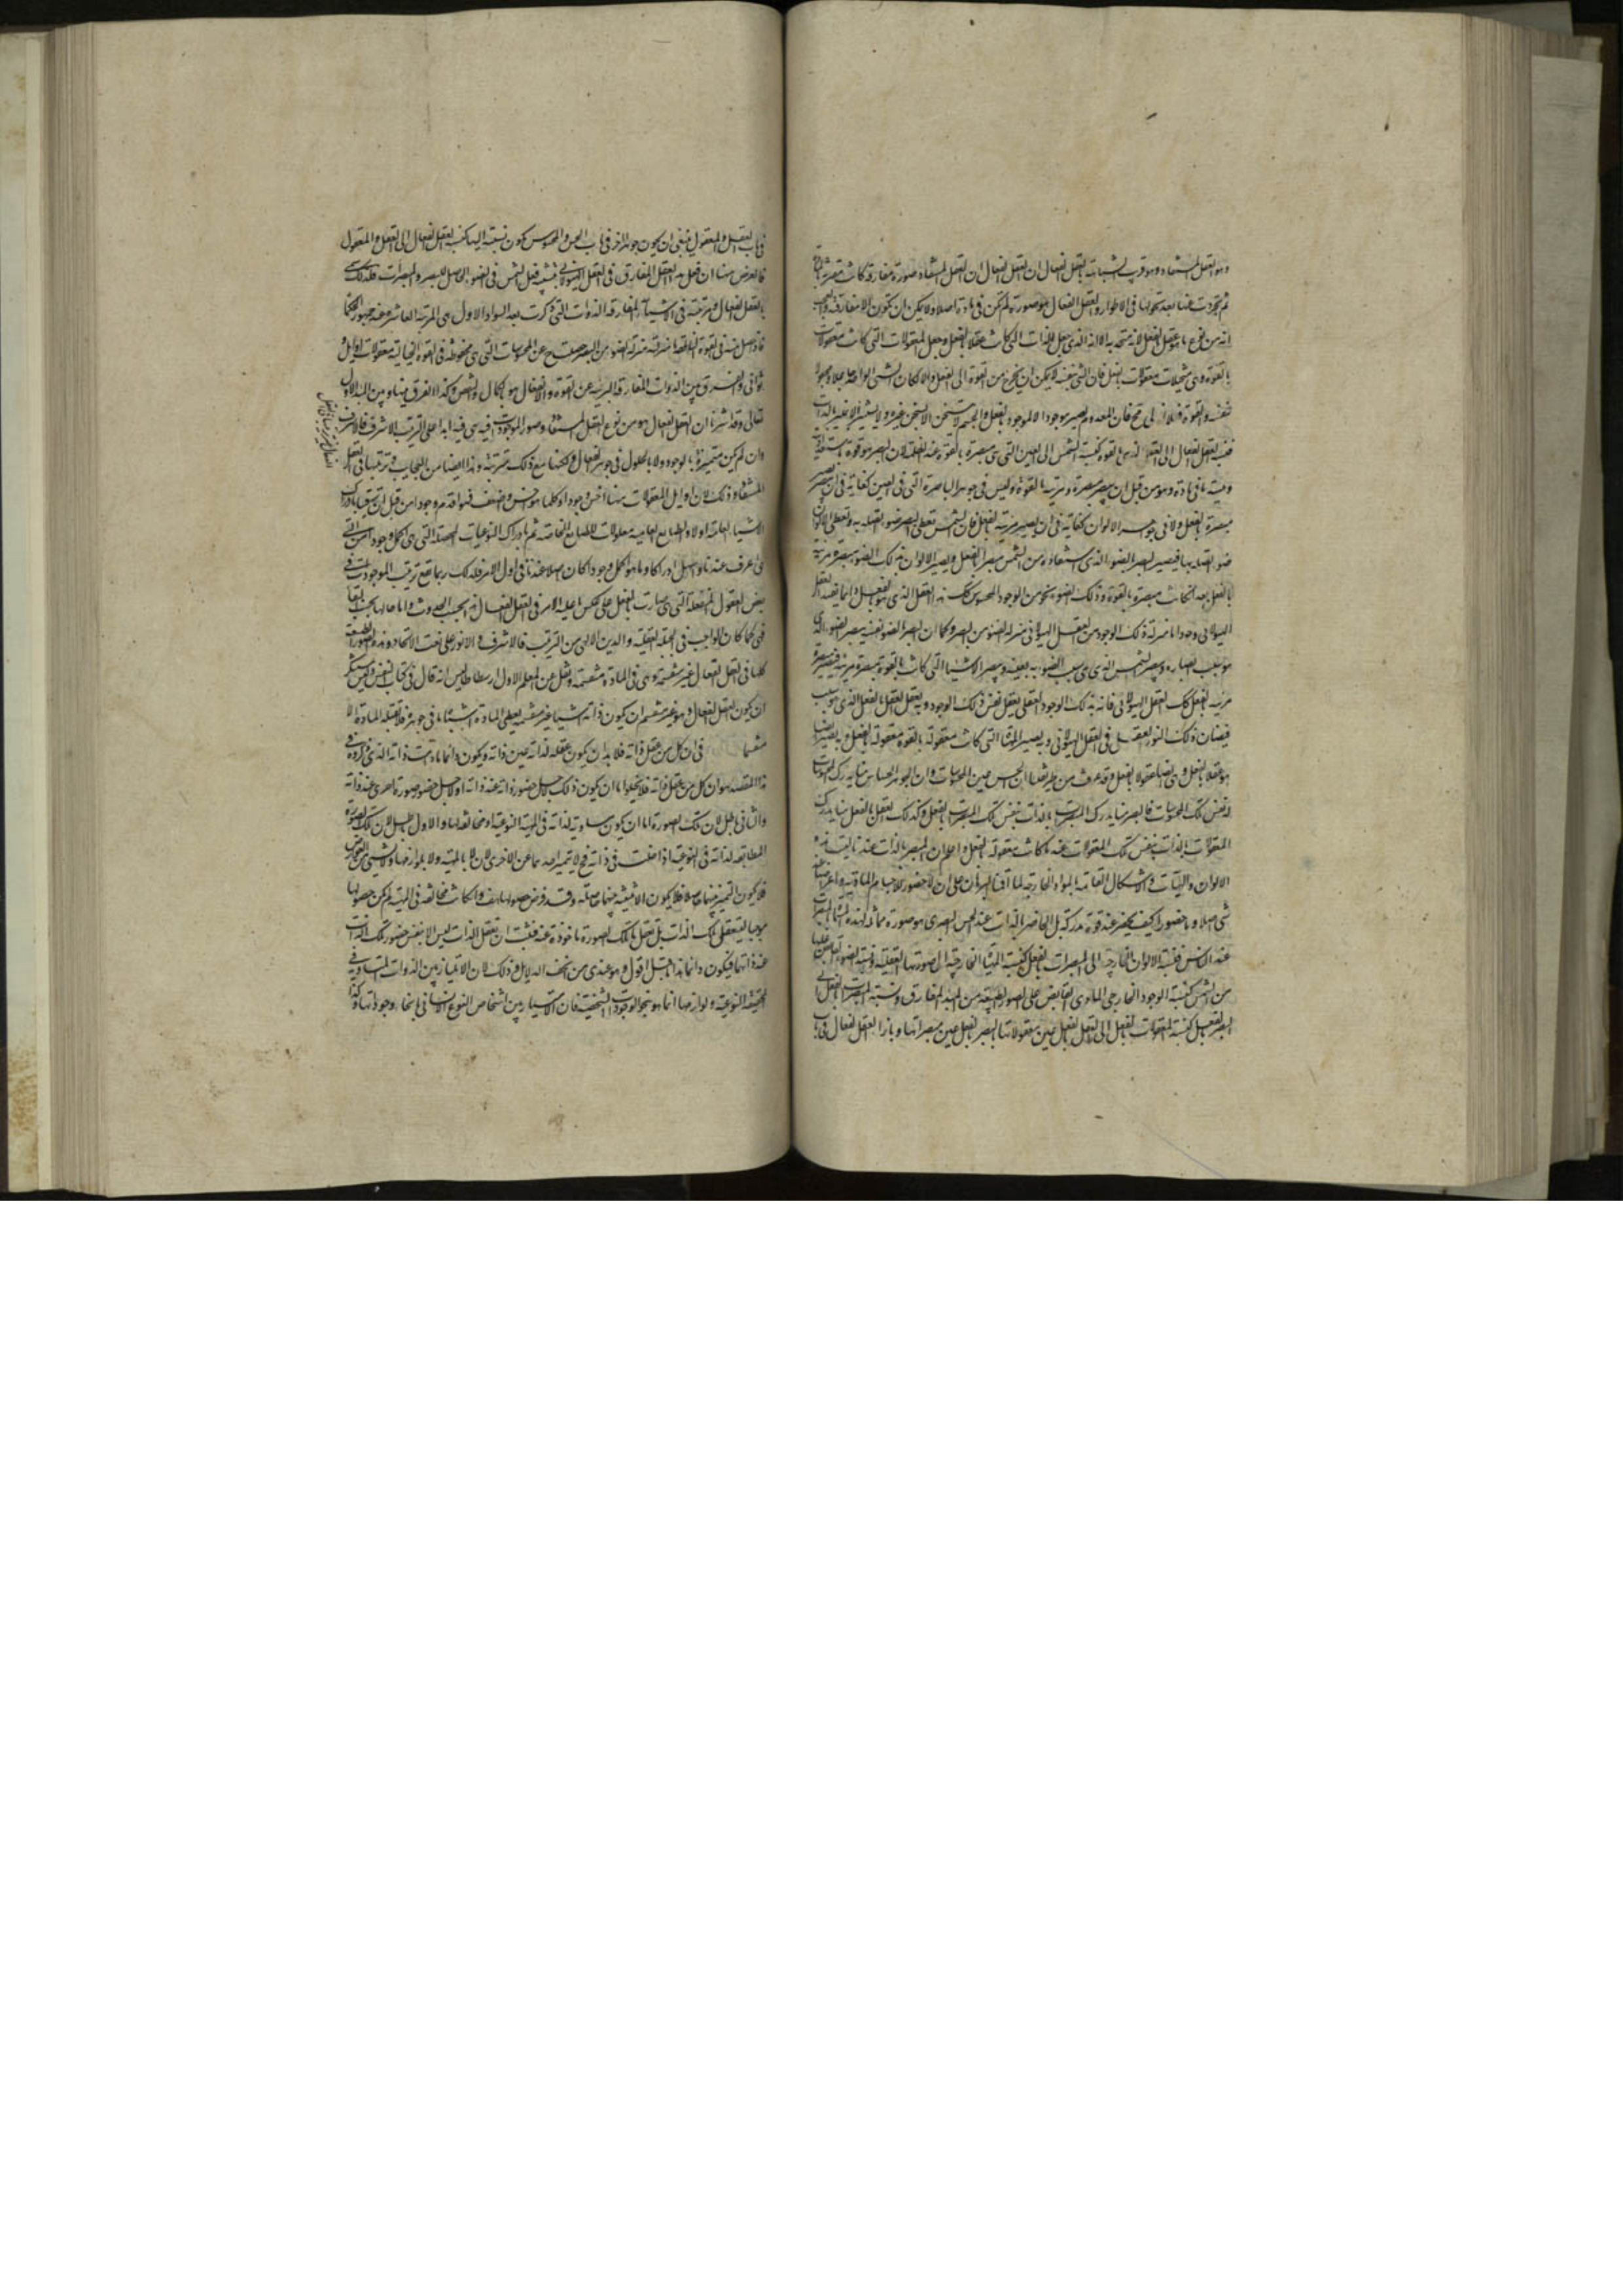 وهو العقل المستفاد وهو قريب الشبه بالعقل الفعال ان العقل الفعال ان العقل المستفاد صورة مفارقة كانت مقترنة بالمادة
ثم تجردت عنها بعد تحولها في الاطوار والعقل الفعال هو صورة لم تكن في مادة اصلا ولا يمكن ان تكون الا مفارقة
انه من نوع ما هو عقل بالفعل لانه متحد به الا انه الذي جعل الذات التي كانت عقلا بالقوة عقلا بالفعل وجعل المعقولات التي كانت معقولات
بالقوة وهي متخيلات معقولات بالفعل فان الشيء بنفسه لا يمكن ان يخرج من القوة الى الفعل والا لكان الشيء الواحد جاعلا ومجعولا
لنفسه والقوة فعلا فان المعدوم لم يصير موجودا الا لموجود بالفعل والجسم لا يتسخن الا بمسخن غيره ولا يستنير الا بنير بالذات
فنسبة العقل الفعال الى العقل الذي بالقوة كنسبة الشمس الى العين التي هي مبصرة بالقوة عند الظلمة لان البصر هو قوة
وهيئة ما في مادة وهو من قبل ان يبصر مبصرة ومرئية بالقوة وليس في جوهر الباصرة التي في العين كفاية في ان يصير
مبصرة بالفعل ولا في جوهر الالوان كفاية في ان يصير مرئية بالفعل فان الشمس تعطي البصر ضوءا تصله به وتعطي الالوان
ضوءا تصله بها فيصير البصر بالضوء الذي استفاده من الشمس مبصرا بالفعل ويصير الالوان بذلك الضوء مبصرة مرئية
بالفعل بعد ان كانت مبصرة بالقوة وذلك الضوء نحو من الوجود المحسوس كذلك هذا العقل الذي هو بالفعل انما يفيد العقل
الهيولاني وجودا ما منزلة ذلك الوجود من العقل الهيولاني منزلة الضوء من البصر وكما ان البصر بالضوء نفسه يبصر الضوء الذي
هو سبب ابصاره ويبصر الشمس الذي هي سبب الضوء به بعينه ويبصر الاشياء التي كانت بالقوة مبصرة مرئية فيصير مبصرة
مرئية بالفعل كذلك العقل الهيولاني فانه بذلك الوجود العقلي يعقل نفس ذلك الوجود وبه يعقل العقل بالفعل الذي هو سبب
فيضان ذلك النور العقلي في العقل الهيولاني وبه يصير الاشياء التي كانت معقولة بالقوة معقولة بالفعل وبه يصير ايضا
هو عقلا بالفعل وقد عرفت من طريقنا ان الحس عين المحسوسات وان الجوهر الحساس منا يدرك المحسوسات
بنفس تلك المحسوسات فالبصر منا يدرك المبصرات بالذات بنفس تلك المبصرات بالفعل وكذلك العقل بالفعل منا يدرك
المعقولات بالذات بنفس تلك المعقولات عند ما كانت معقولة بالفعل واعلم ان المبصر بالذات عندنا ليست هذه
الالوان والهيئات والاشكال القائمة بالمواد الخارجية لما اقمنا البرهان على ان لا حضور للاجسام المادية واعراضها عند
شيء اصلا وما لا حضور له كيف يحضر عند قوة مدركة بل الحاضر بالذات عند الحس البصري هو صورة مماثلة لهذه المبصرات
عند الناس فنسبة الالوان الخارجية الى المبصرات بالفعل كنسبة الاشياء الخارجية الى صورتها العقلية ونسبة الضوء الفائض عليها
من الشمس كنسبة الوجود الخارجي المادي الفائض على الصور الطبيعية من المبدء المفارق ونسبة المبصرات بالفعل الى
البصر بالفعل كنسبة المعقولات بالفعل الى العقل بالفعل عين معقولاتها والبصر بالفعل عين مبصراتها وبازاء العقل الفعال في باب
في باب العقل والمعقول ينبغي ان يكون جوهر اخر في باب الحس والمحسوس كون نسبته اليها كنسبة العقل الفعال الى العقل والمعقول
فالغرض هنا ان فعل هذا العقل المفارق في العقل الهيولاني يشبه فعل الشمس في الضوء الواصل للبصر والمبصرات فلذلك سمي
بالعقل الفعال ومرتبته في الاشياء المفارقة الذوات التي ذكرت بعد السواد الاول هي المرتبة العاشرة عند جمهور الحكماء
فاذا حصل منه في القوة الناطقة ما منزلته منزلة الضوء من البصر حصلت ح عن المحسوسات التي هي محفوظة في القوة الخيالية معقولات اوايل و
ثواني والفرق بين الذوات المفارقة البرية عن القوة والانفعال هو بالكمال والنقص وكذا الفرق بينها وبين المبدء الاول
تعالى وقد اشرنا ان العقل الفعال هو من نوع العقل المستفاد وصور الموجودات فيه هي فيه ابدا على الترتيب الاشرف فالاشرف
وان لم يكن متميزة بالوجود ولا بالحلول في جوهر الفعال ولكنها مع ذلك مترتبة وهذا ايضا من العجايب وترتيبها في العقل
المستفاد وذلك لان اوايل المعقولات هنا اخس وجودا وكلما هو اخس واضعف فهو اقدم وجودا من قبل ان نبتدي بادراك
الاشياء العامة اولا والطبايع العامية معلولات للطبايع الخاصة ثم بادراك النوعيات المحصلة التي هي اكمل وجودا من التي
هي اعرف عندنا واسهل ادراكا وما هو اكمل وجودا كان اصلا عندنا في اول الامر فلذلك ربما تقع ترتيب الموجودات في
بعض العقول المنفعلة التي صارت بالفعل على عكس ما عليه الامر في العقل الفعال
كلها في العقل الفعال غير منقسمة وهي في المادة منقسمة ونقل عن المعلم الاول ارسطاطاليس انه قال في كتاب النفس وليس يستنكر
ان يكون العقل الفعال وهو غير منقسم ان يكون ذاته اشياء غير منقسمة يعطي المادة اشباه ما في جوهره فلا تقبله المادة الا
منقسما في ان كل من عقل ذاته فلا بد ان يكون عقله لذاته عين ذاته ويكون دائما ما دامت ذاته الذي نورده في
هذا المقصد هو ان كل من يعقل ذاته فلا يخلوا اما ان يكون ذلك لاجل حضور ذاته عند ذاته او لاجل حضور صورة اخرى عند ذاته
والثاني باطل لان تلك الصورة اما ان يكون مساوية لذاته في المهية النوعية او مخالفة لها والاول باطل لان تلك الصورة
المطابقة لذاته في النوعية اذا حلت في ذاته فح لا تميز احدهما عن الاخرى لا بالمهية ولا بلوازمها ولا بشيء من العوارض
فلا يكون التميز بينهما حاصلا فلا يكون الاثنينية بينهما حاصلة وقد فرض حصولها هف وان كانت مخالفة في المهية لم يكن حصولها
موجبا لتعقل تلك الذات بل تعقل ما تلك الصورة ماخوذة عنه فثبت ان تعقل الذات ليس الا بنفس حضور تلك الذات
عند ذاتها فيكون دائما اقول وهو عندي من انحف الدلايل وذلك لان الامتياز بين الذوات المتساوية في
الحقيقة النوعية ولوازمها انما هو بنحو الوجودات الشخصية فان الامتياز بين اشخاص النوع الانساني بانحاء وجوداتها وكذا